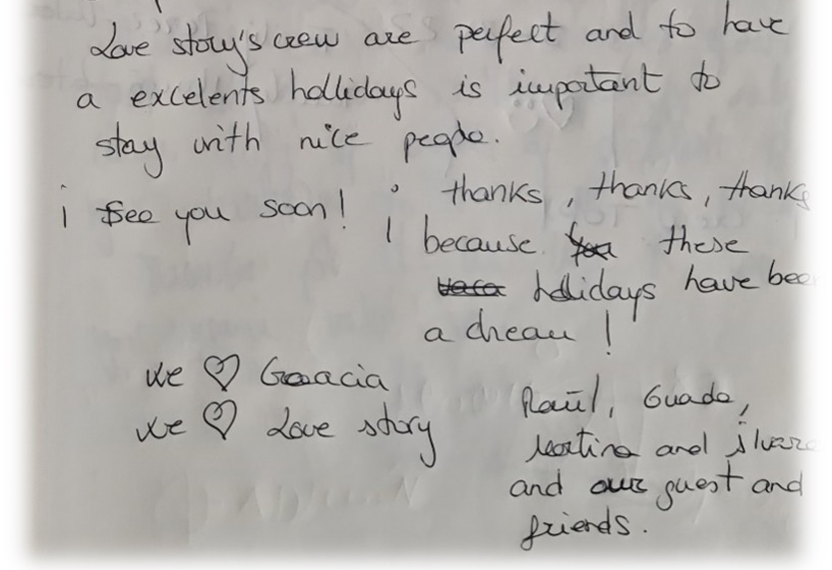 Love story's crew are perfect and to have
a excelents hollidays is important to
stay with nice people.
¡ See you soon!
¡ thanks, thanks, thanks
because these
hollidays have bee
a dream!
we ♡ Goacia
we ♡ Love story
Raül, Guada,
Martina and
and our guest and
friends.